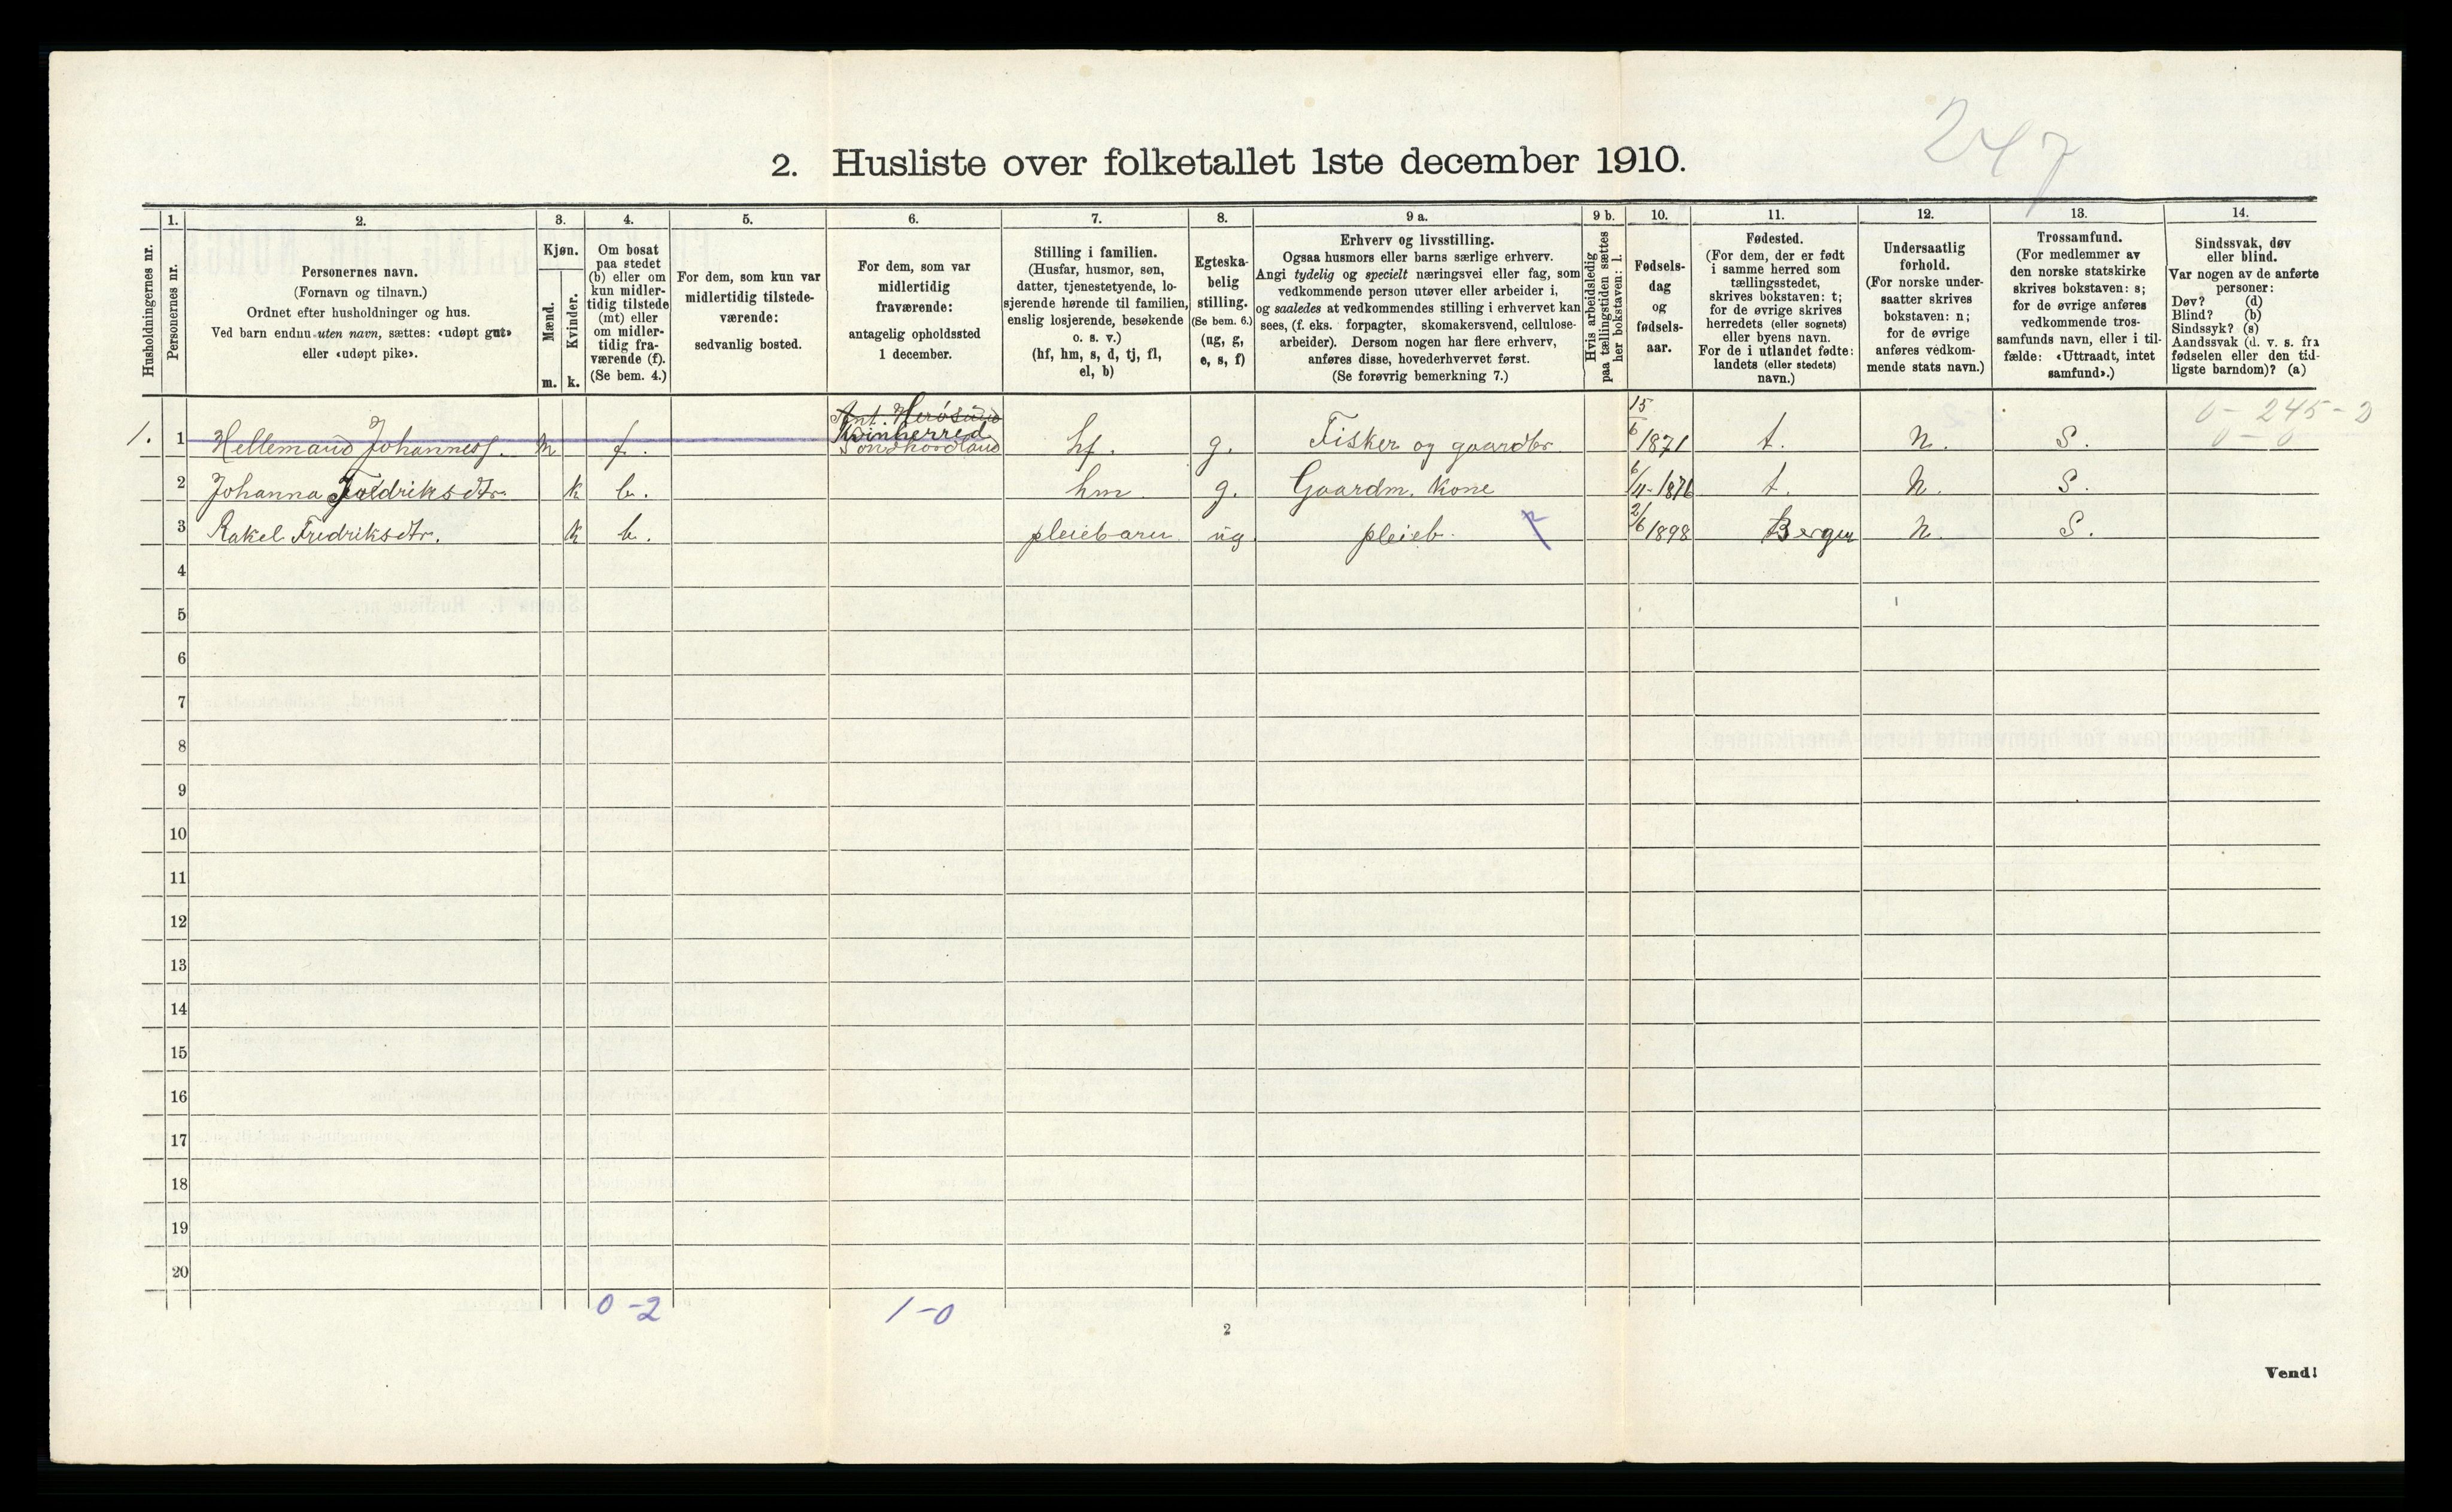 247
2. Husliste over folketallet 1ste december 1910.
Husholdningernes nr.
1.
Personernes nr.
2.
Personernes navn.
(Fornavn og tilnavn.)
Ordnet efter husholdninger og hus.
Ved barn endnu uten navn, sættes: «udøpt gut»
eller «udøpt pike».
3.
Kjøn.
Mænd.
Kvinder.
m. k.
4.
Om bosat
paa stedet
(b) eller om
kun midler-
tidig tilstede
(mt) eller
om midler-
tidig fra-
værende (f).
(Se bem. 4.)
5.
For dem, som kun var
midlertidig tilstede-
værende:
sedvanlig bosted.
6.
For dem, som var
midlertidig
fraværende:
antagelig opholdssted
1 december.
7.
Stilling i familien.
(Husfar, husmor, søn,
datter, tjenestetyende, lo-
sjerende hørende til familien,
enslig losjerende, besøkende
o. s. v.)
(hf, hm, s, d, tj, fl,
el, b)
8.
Egteska-
belig
stilling.
(Se bem. 6.)
(ug, g,
e, s, f)
9 a.
Erhverv og livsstilling.
Ogsaa husmors eller barns særlige erhverv.
Angi tydelig og specielt næringsvei eller fag, som
vedkommende person utøver eller arbeider i,
og saaledes at vedkommendes stilling i erhvervet kan
sees, (f. eks. forpagter, skomakersvend, cellulose-
arbeider). Dersom nogen har flere erhverv,
anføres disse, hovederhvervet først.
(Se forøvrig bemerkning 7.)
9 b.
Hvis arbeidsledig
paa tællingstiden sættes
her bokstaven: l.
10.
Fødsels-
dag
og
fødsels-
aar.
11.
Fødested.
(For dem, der er født
i samme herred som
tællingsstedet,
skrives bokstaven: t;
for de øvrige skrives
herredets (eller sognets)
eller byens navn.
For de i utlandet fødte:
landets (eller stedets)
navn.)
12.
Undersaatlig
forhold.
(For norske under-
saatter skrives
bokstaven: n;
for de øvrige
anføres vedkom-
mende stats navn.)
13.
Trossamfund.
(For medlemmer av
den norske statskirke
skrives bokstaven: s;
for de øvrige anføres
vedkommende tros-
samfunds navn, eller i til-
fælde: «Uttraadt, intet
samfund».)
14.
Sindssvak, døv
eller blind.
Var nogen av de anførte
personer:
Døv? (d)
Blind? (b)
Sindssyk? (s)
Aandssvak (d. v. s. fra
fødselen eller den tid-
ligste barndom)? (a)
0 - 245 - 2
0 - 0
Ant. Herösund
Kvinherred
Söndhordland
1. 1 Hellemand Johanness. m f. hf. g. Fisker og gaardbr. 15/6 1871 t. n. S.
2 Johanna Fredriksdtr. k b. hm g. Gaardm. Kone 6/11-1876 t. n. S.
3 Rakel Fredriksdtr. k b. pleiebarn ug pleieb. 2/6 1898 Bergen n. S.
4
5
6
7
8
9
10
11
12
13
14
15
16
17
18
19
20
0-2 1-0
2
Vend!